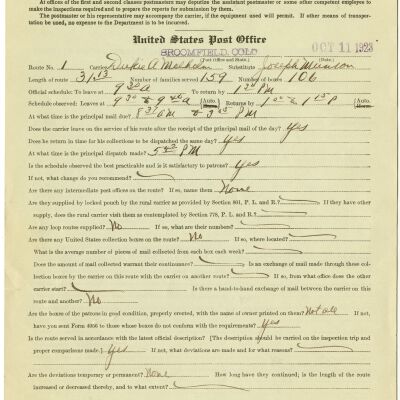 At offices of the first and second classes postmasters may deputize the assistant postmaster or some other competent employee to
make the inspections required and to prepare the reports for submission by them.
The postmaster or his representative may accompany the carrier, if the equipment used will permit. If other means of transporta-
tion be used, no expense to the Department is to be incurred.
United States Post Office
BROOMFIELD, COLO
OCT 11 1923
(Post Office and State.)
Route No. 1 Carrier Substitute Joseph Munson
Length of route Number of families served 159 Number of boxes 106
Official schedule: To leave at 9 30 a To return by 1 30 PM
Schedule observed: Leaves at (Auto.) Returns by (Auto.)
At what time is the principal mail due?
Does the carrier leave on the service of his route after the receipt of the principal mail of the day? Yes
Does he return in time for his collections to be dispatched the same day? Yes
At what time is the principal dispatch made? PM
Is the schedule observed the best practicable and is it satisfactory to patrons? Yes
If not, what change do you recommend?
Are there any intermediate post offices on the route? If so, name them None
Are they supplied by locked pouch by the rural carrier as provided by Section 801, P. L. and R.? If they have other
supply, does the rural carrier visit them as contemplated by Section 778, P. L. and R.?
Are any loop routes supplied? No If so, what are their numbers?
Are there any United States collection boxes on the route? No If so, where located?
What is the average number of pieces of mail collected from each box each week?
Does the amount of mail collected warrant their continuance? Is an exchange of mail made through these col-
lection boxes by the carrier on this route with the carrier on another route? If so, from what office does the other
carrier start? Is there a hand-to-hand exchange of mail between the carrier on this
route and another? No
Are the boxes of the patrons in good condition, properly erected, with the name of owner printed on them? Not all If not,
have you sent Form 4056 to those whose boxes do not conform with the requirements? Yes
Is the route served in accordance with the latest official description? [The description should be carried on the inspection trip and
proper comparisons made.] Yes If not, what deviations are made and for what reasons?
Are the deviations temporary or permanent? None How long have they continued; is the length of the route
increased or decreased thereby, and to what extent?